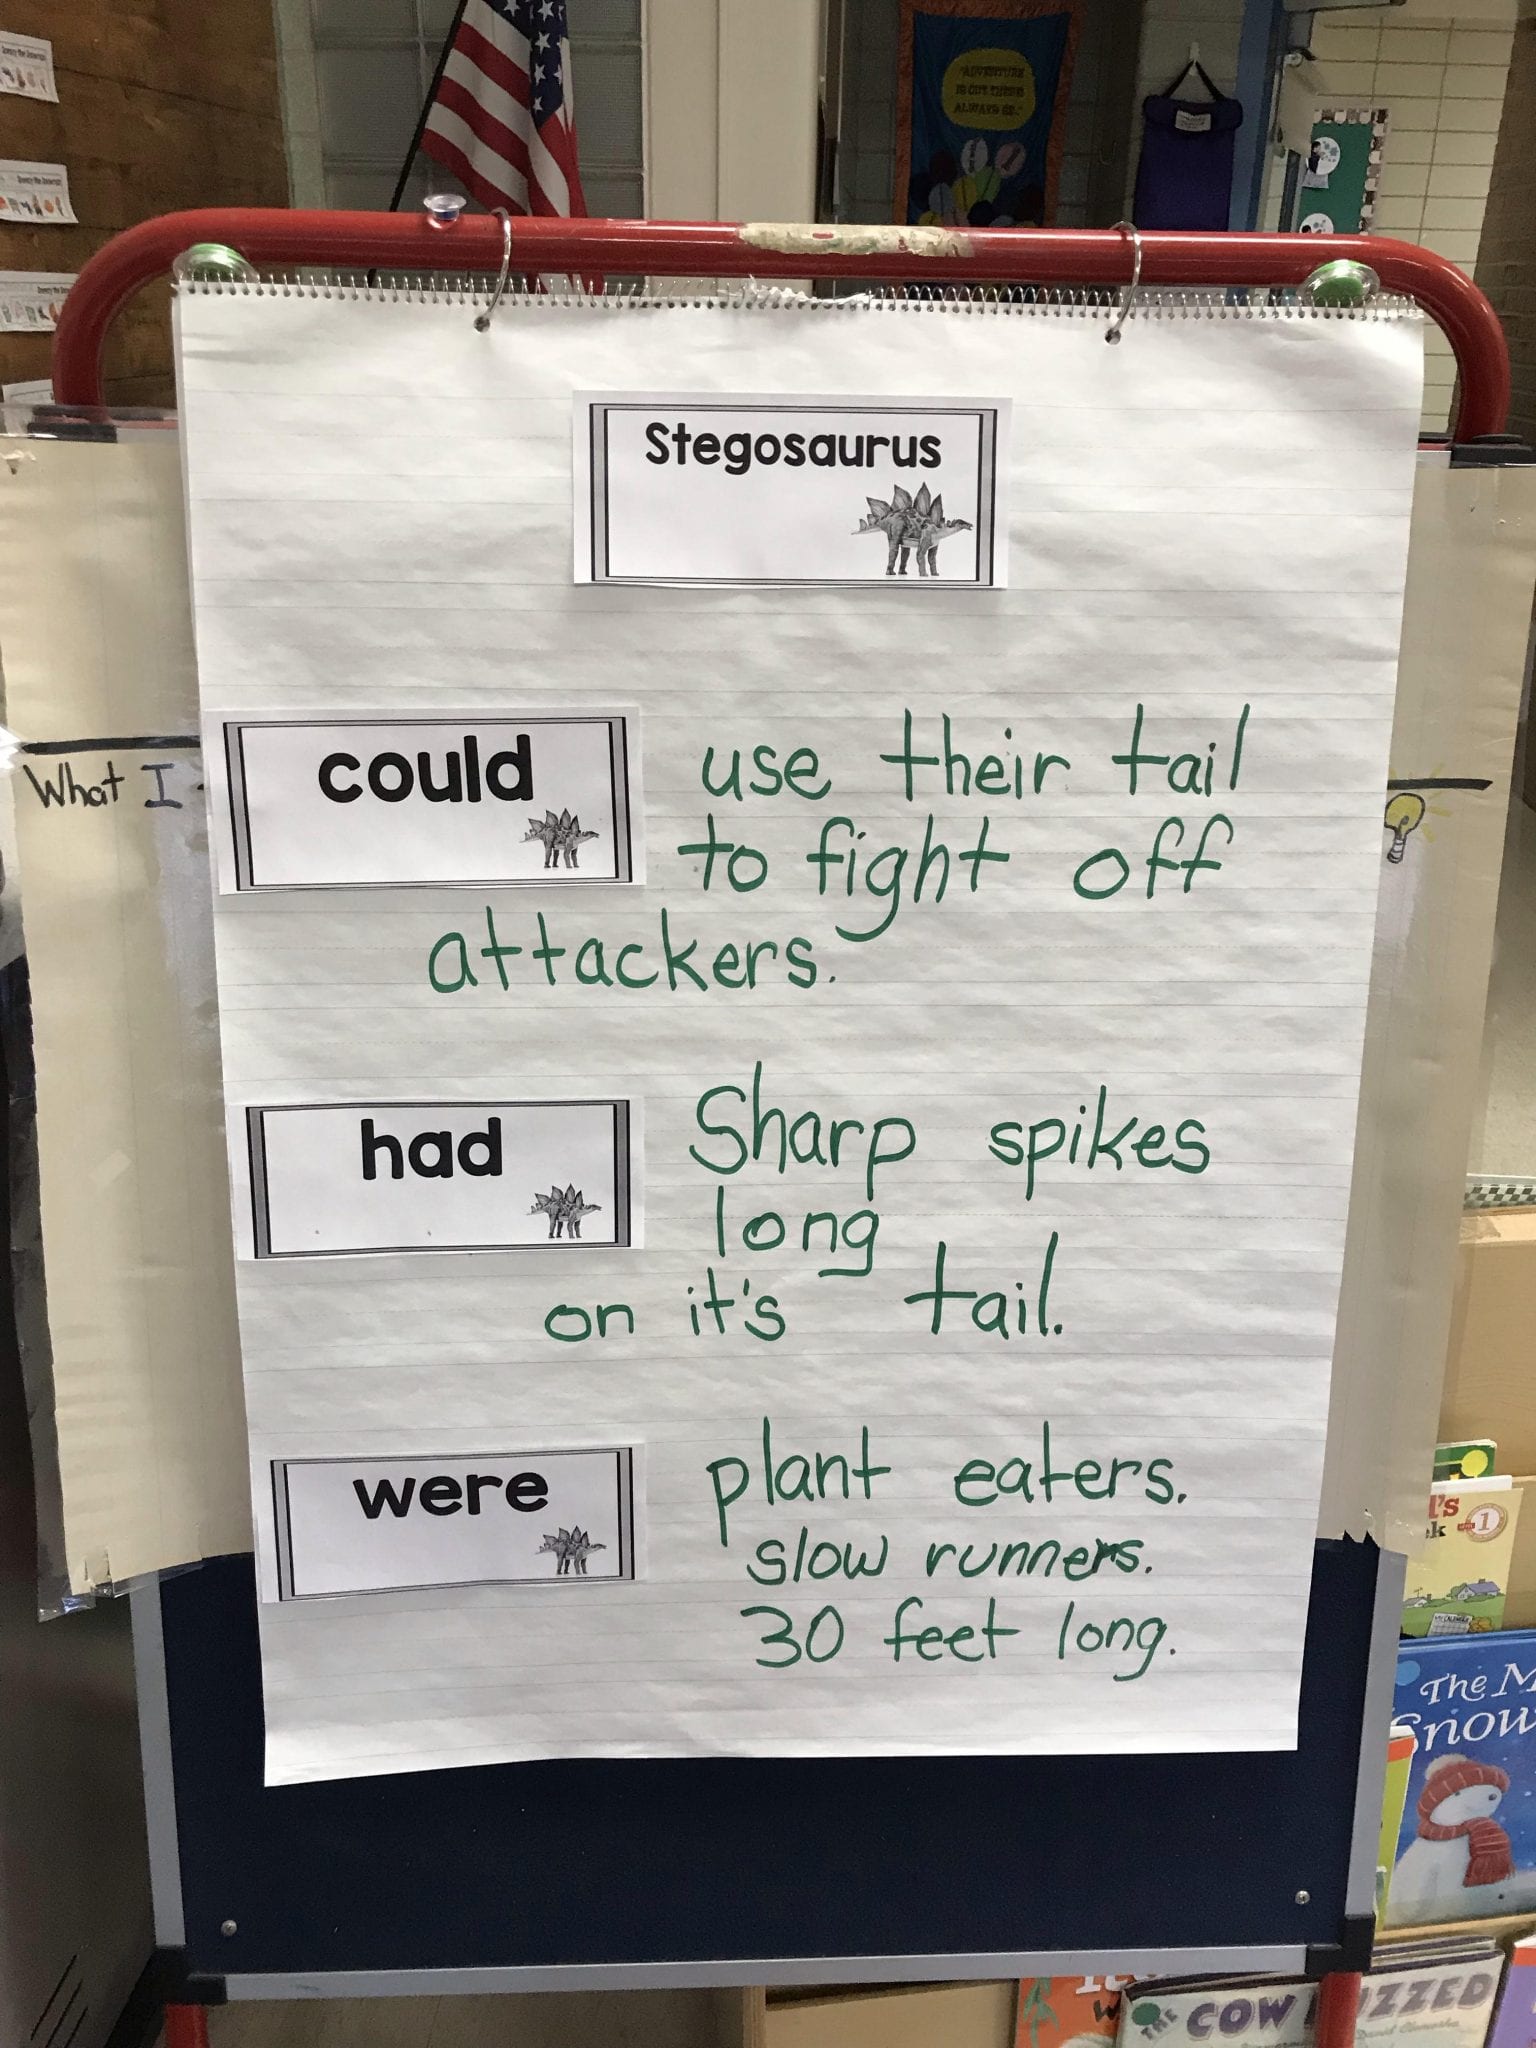 "ADVENTURE
IS OUT THERE
ALWAYS BE."
Stegosaurus
could
use their tail
to fight off
attackers.
What I
had
Sharp spikes
long
on it's tail.
were
plant eaters.
slow runners.
30 feet long.
The
Snow
THE COW
David Clements